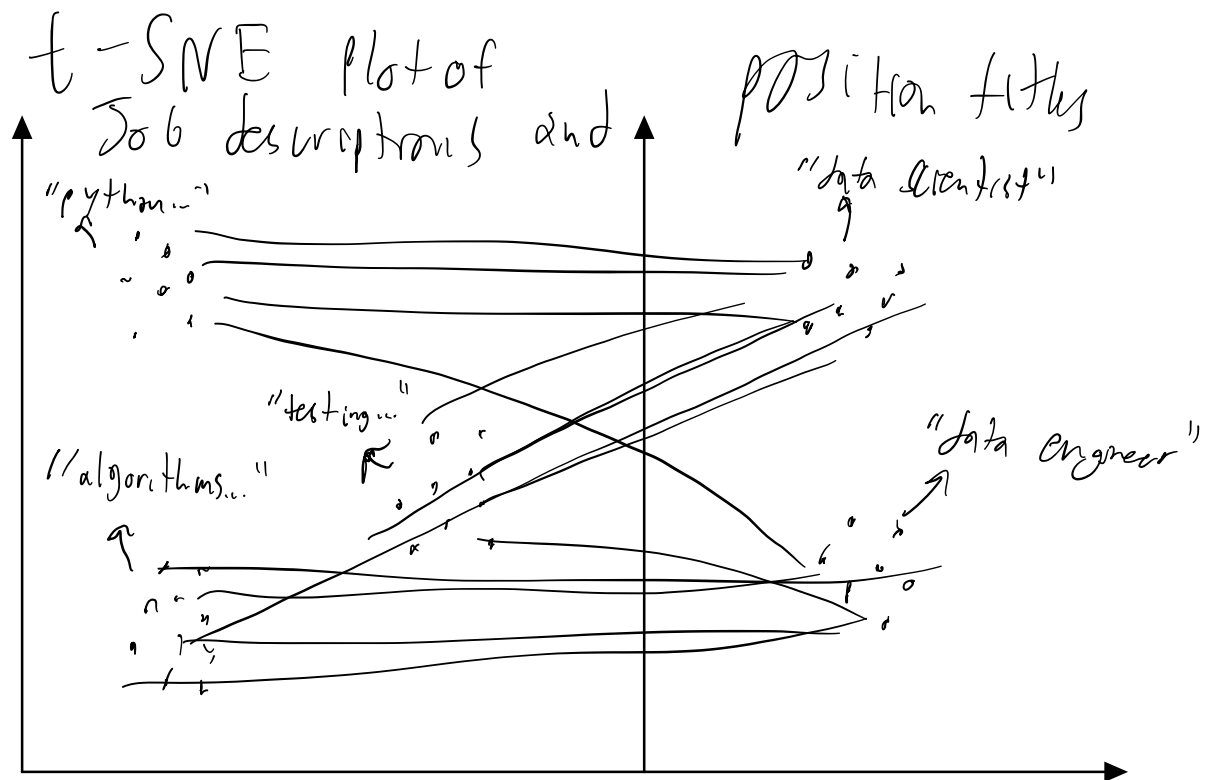 t-SNE plot of
Job descriptions and
position titles
"python..."
"data scientist"
"testing..."
"algorithms..."
"data engineer"